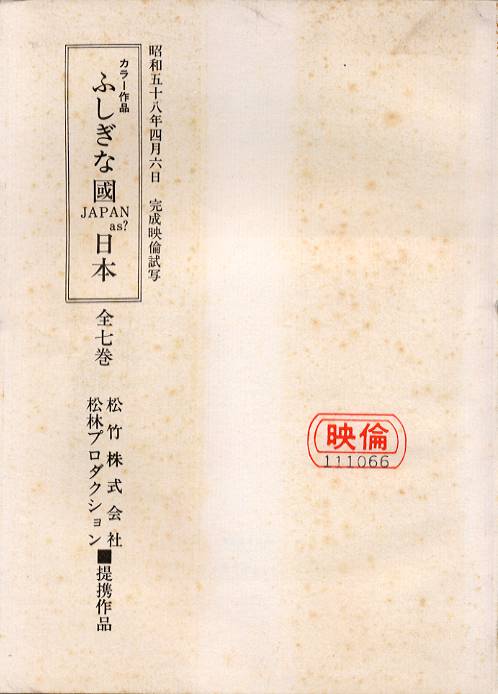 昭和五十八年四月六日　完成映倫試写
カラー作品
ふしぎな國日本
JAPAN
as?
全七巻
松竹株式会社
松林プロダクション■提携作品
映倫
111066